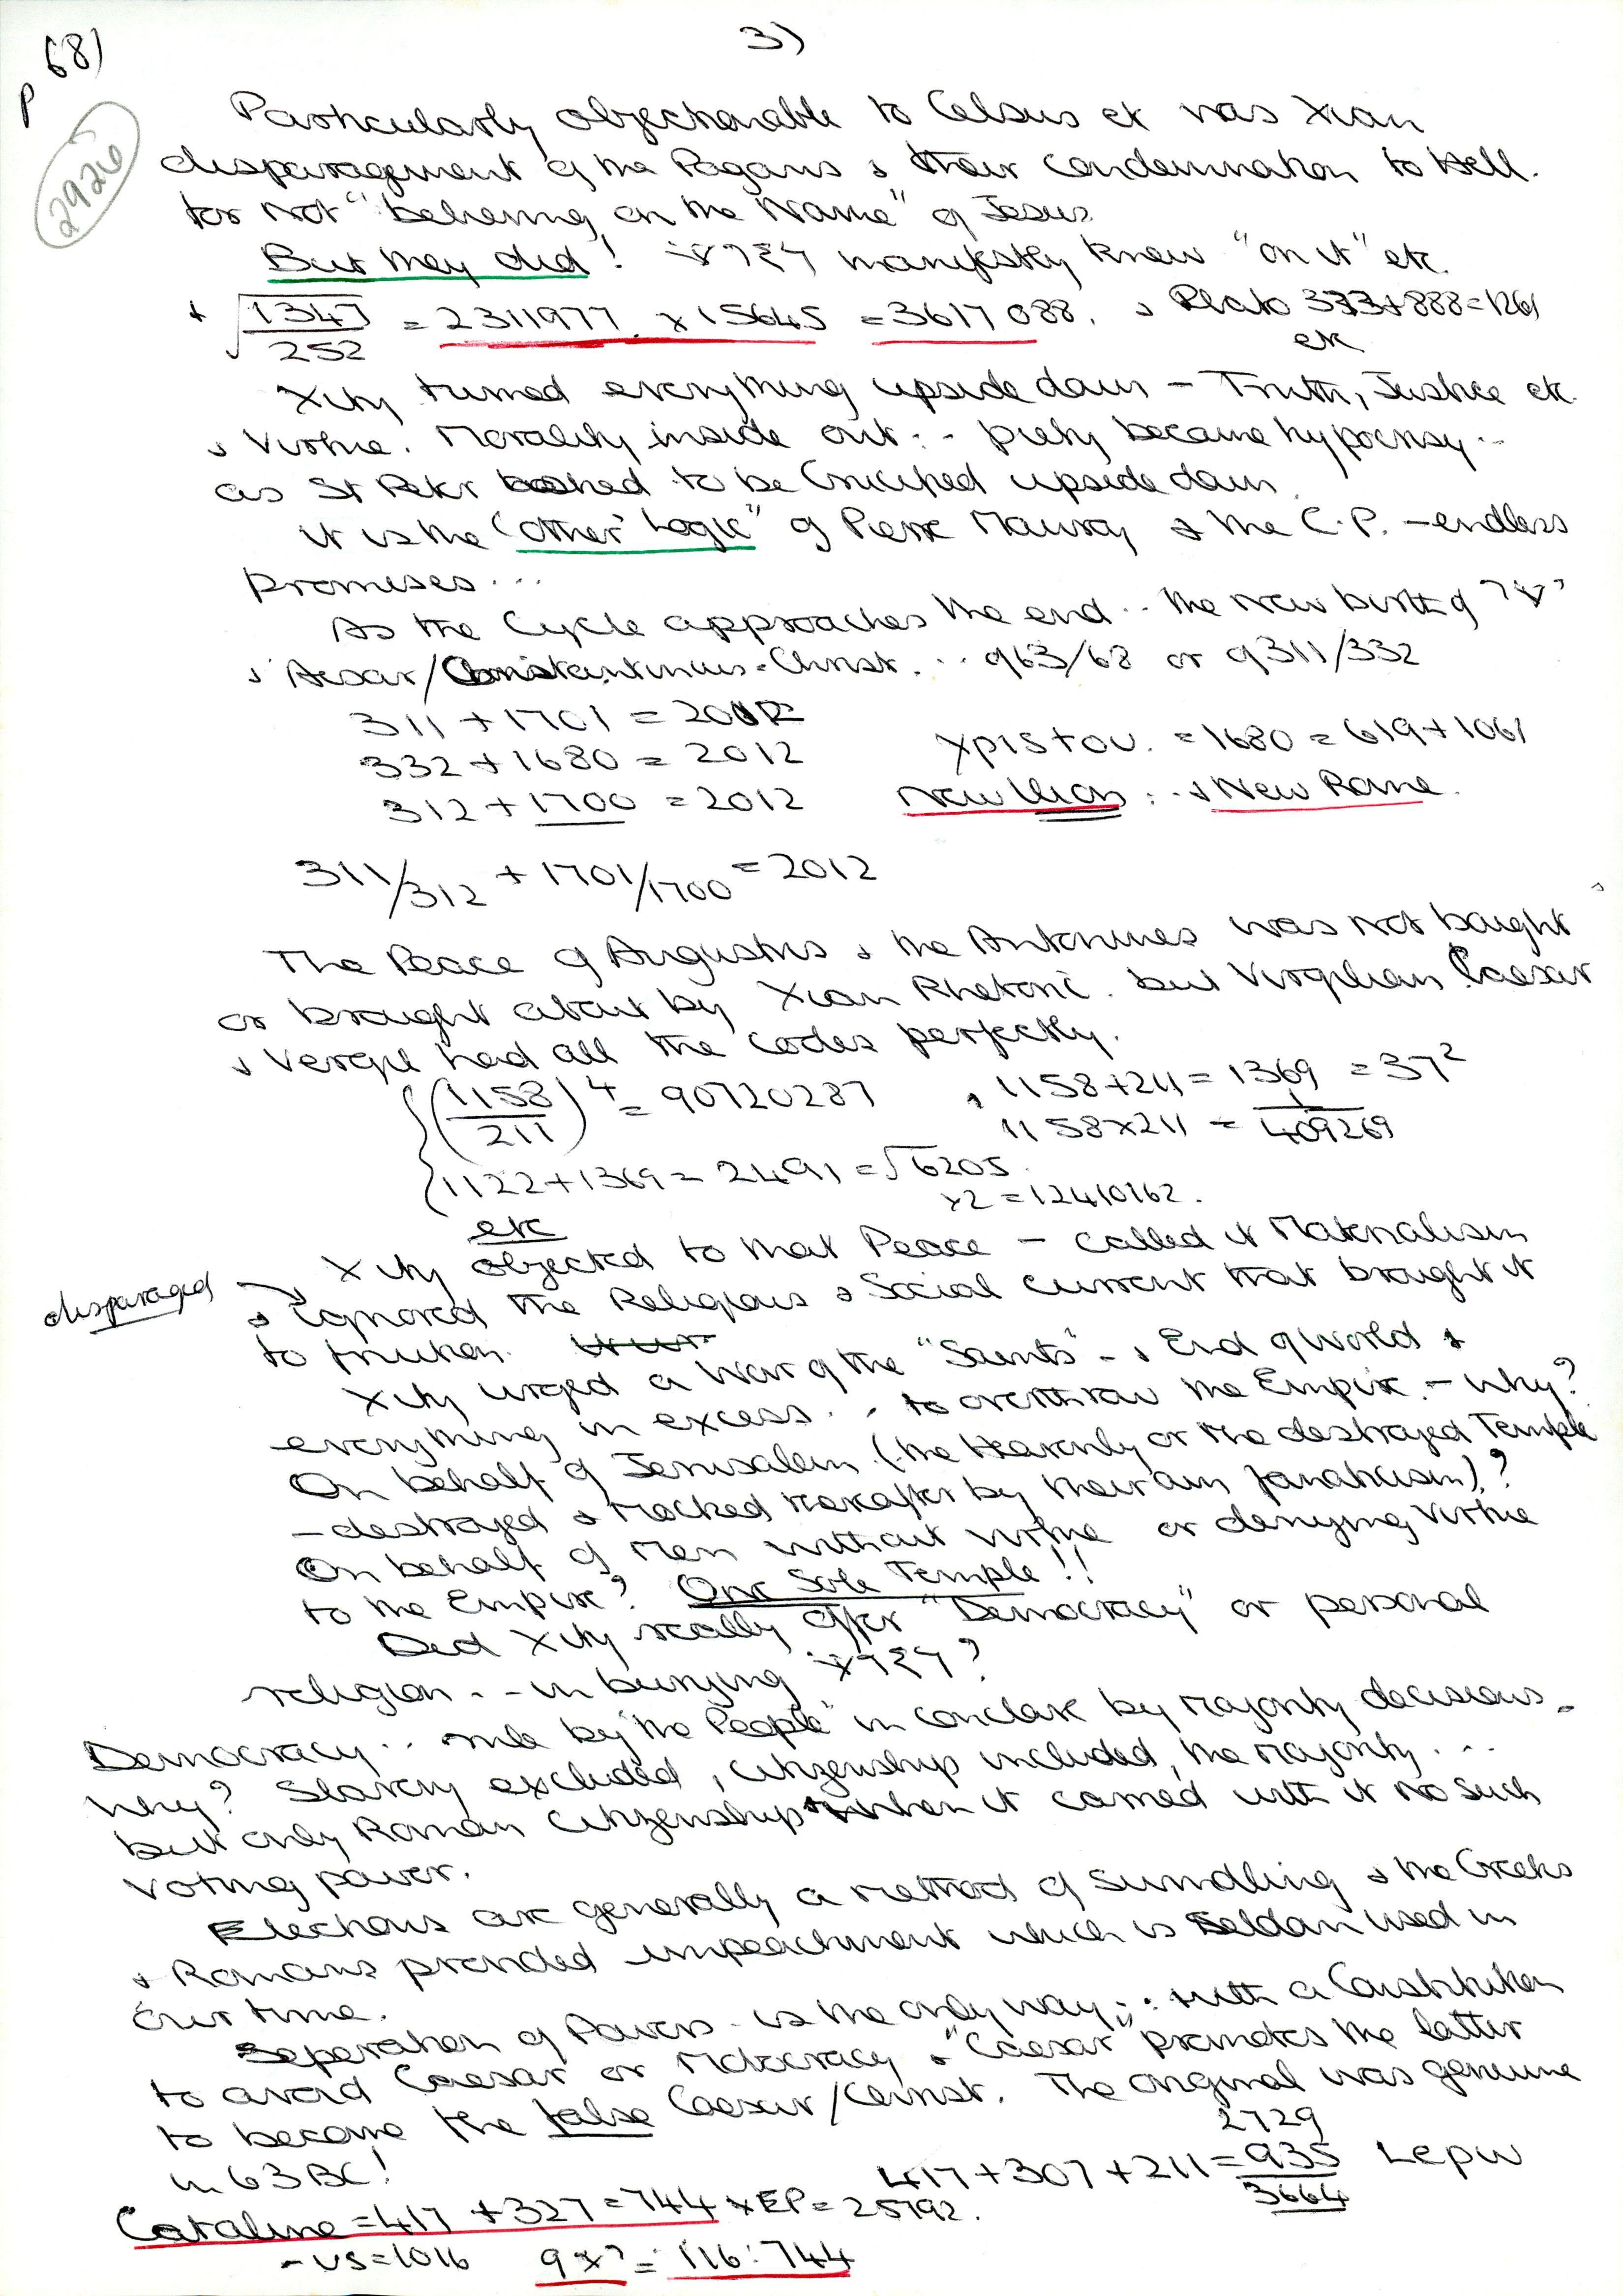 3)
p 68)
2926
Particularly objectionable to Celsus etc was Xian
disparagement of the Pagans & their condemnation to Hell.
for not "believing on the Name" of Jesus.
But they did! manifestly knew "on it" etc.
+ √1347/252 = 2311977 . x 15645 = 3617088. & Plato 373+888=1261
etc
Xity turned everything upside down – Truth, Justice etc.
& Virtue. Morality inside out: - piety became hypocrisy..
as St Peter asked to be Crucified upside down.
it is the "Other Logic" of Pierre Maury & the C.P. – endless
promises...
As the Cycle approaches the end .. the new birth of
& Aesar/Constantinus-Christ. .. of 63/68 or of 311/332
311 + 1701 = 2012
332 + 1680 = 2012 Xpistou. = 1680 = 619 + 1061
312 + 1700 = 2012 New : - & New Rome.
311/312 + 1701/1700 = 2012
The Peace of Augustus & the Antonines was not bought
or brought about by Xian Rhetoric. but Virgilian Caesar
& Vergil had all the codes perfectly.
(1158/211)⁴ = 90720287 , 1158+211 = 1369 = 37²
1158x211 = 409269
1122+1369 = 2491 = √6205
x2 = 12410162.
etc
Xity objected to that Peace – called it Materialism
disparaged
& ignored the Religious & Social current that brought it
to fruition.
Xity urged a War of the "Saints" - & End of World &
everything in excess. . to overthrow the Empire. – why?
On behalf of Jerusalem. (the Heavenly or the destroyed Temple
– destroyed & mocked thereafter by their own fanaticism).?
On behalf of Men without virtue or denying Virtue
to the Empire? One Sole Temple!!
Did Xity really offer "Democracy" or personal
religion. - - in burying ?
Democracy .. rule by "the People" in conclave by majority decisions. –
Why? Slavery excluded, citizenship included, the majority...
but only Roman Citizenship when it carried with it no such
voting power.
Elections are generally a method of swindling & the Greeks
& Romans provided impeachment which is seldom used in
our time.
Seperation of Powers – is the only way;: with a Constitution
to avoid Caesar or Mobocracy & "Caesar" promotes the latter
to become the false Caesar/Christ. The original was genuine
in 63 BC!
2729
417 + 307 + 211 = 935 Lepu
3664
Cataline = 417 + 327 = 744 x EP = 25792.
– us = 1016 9x? = 116:744